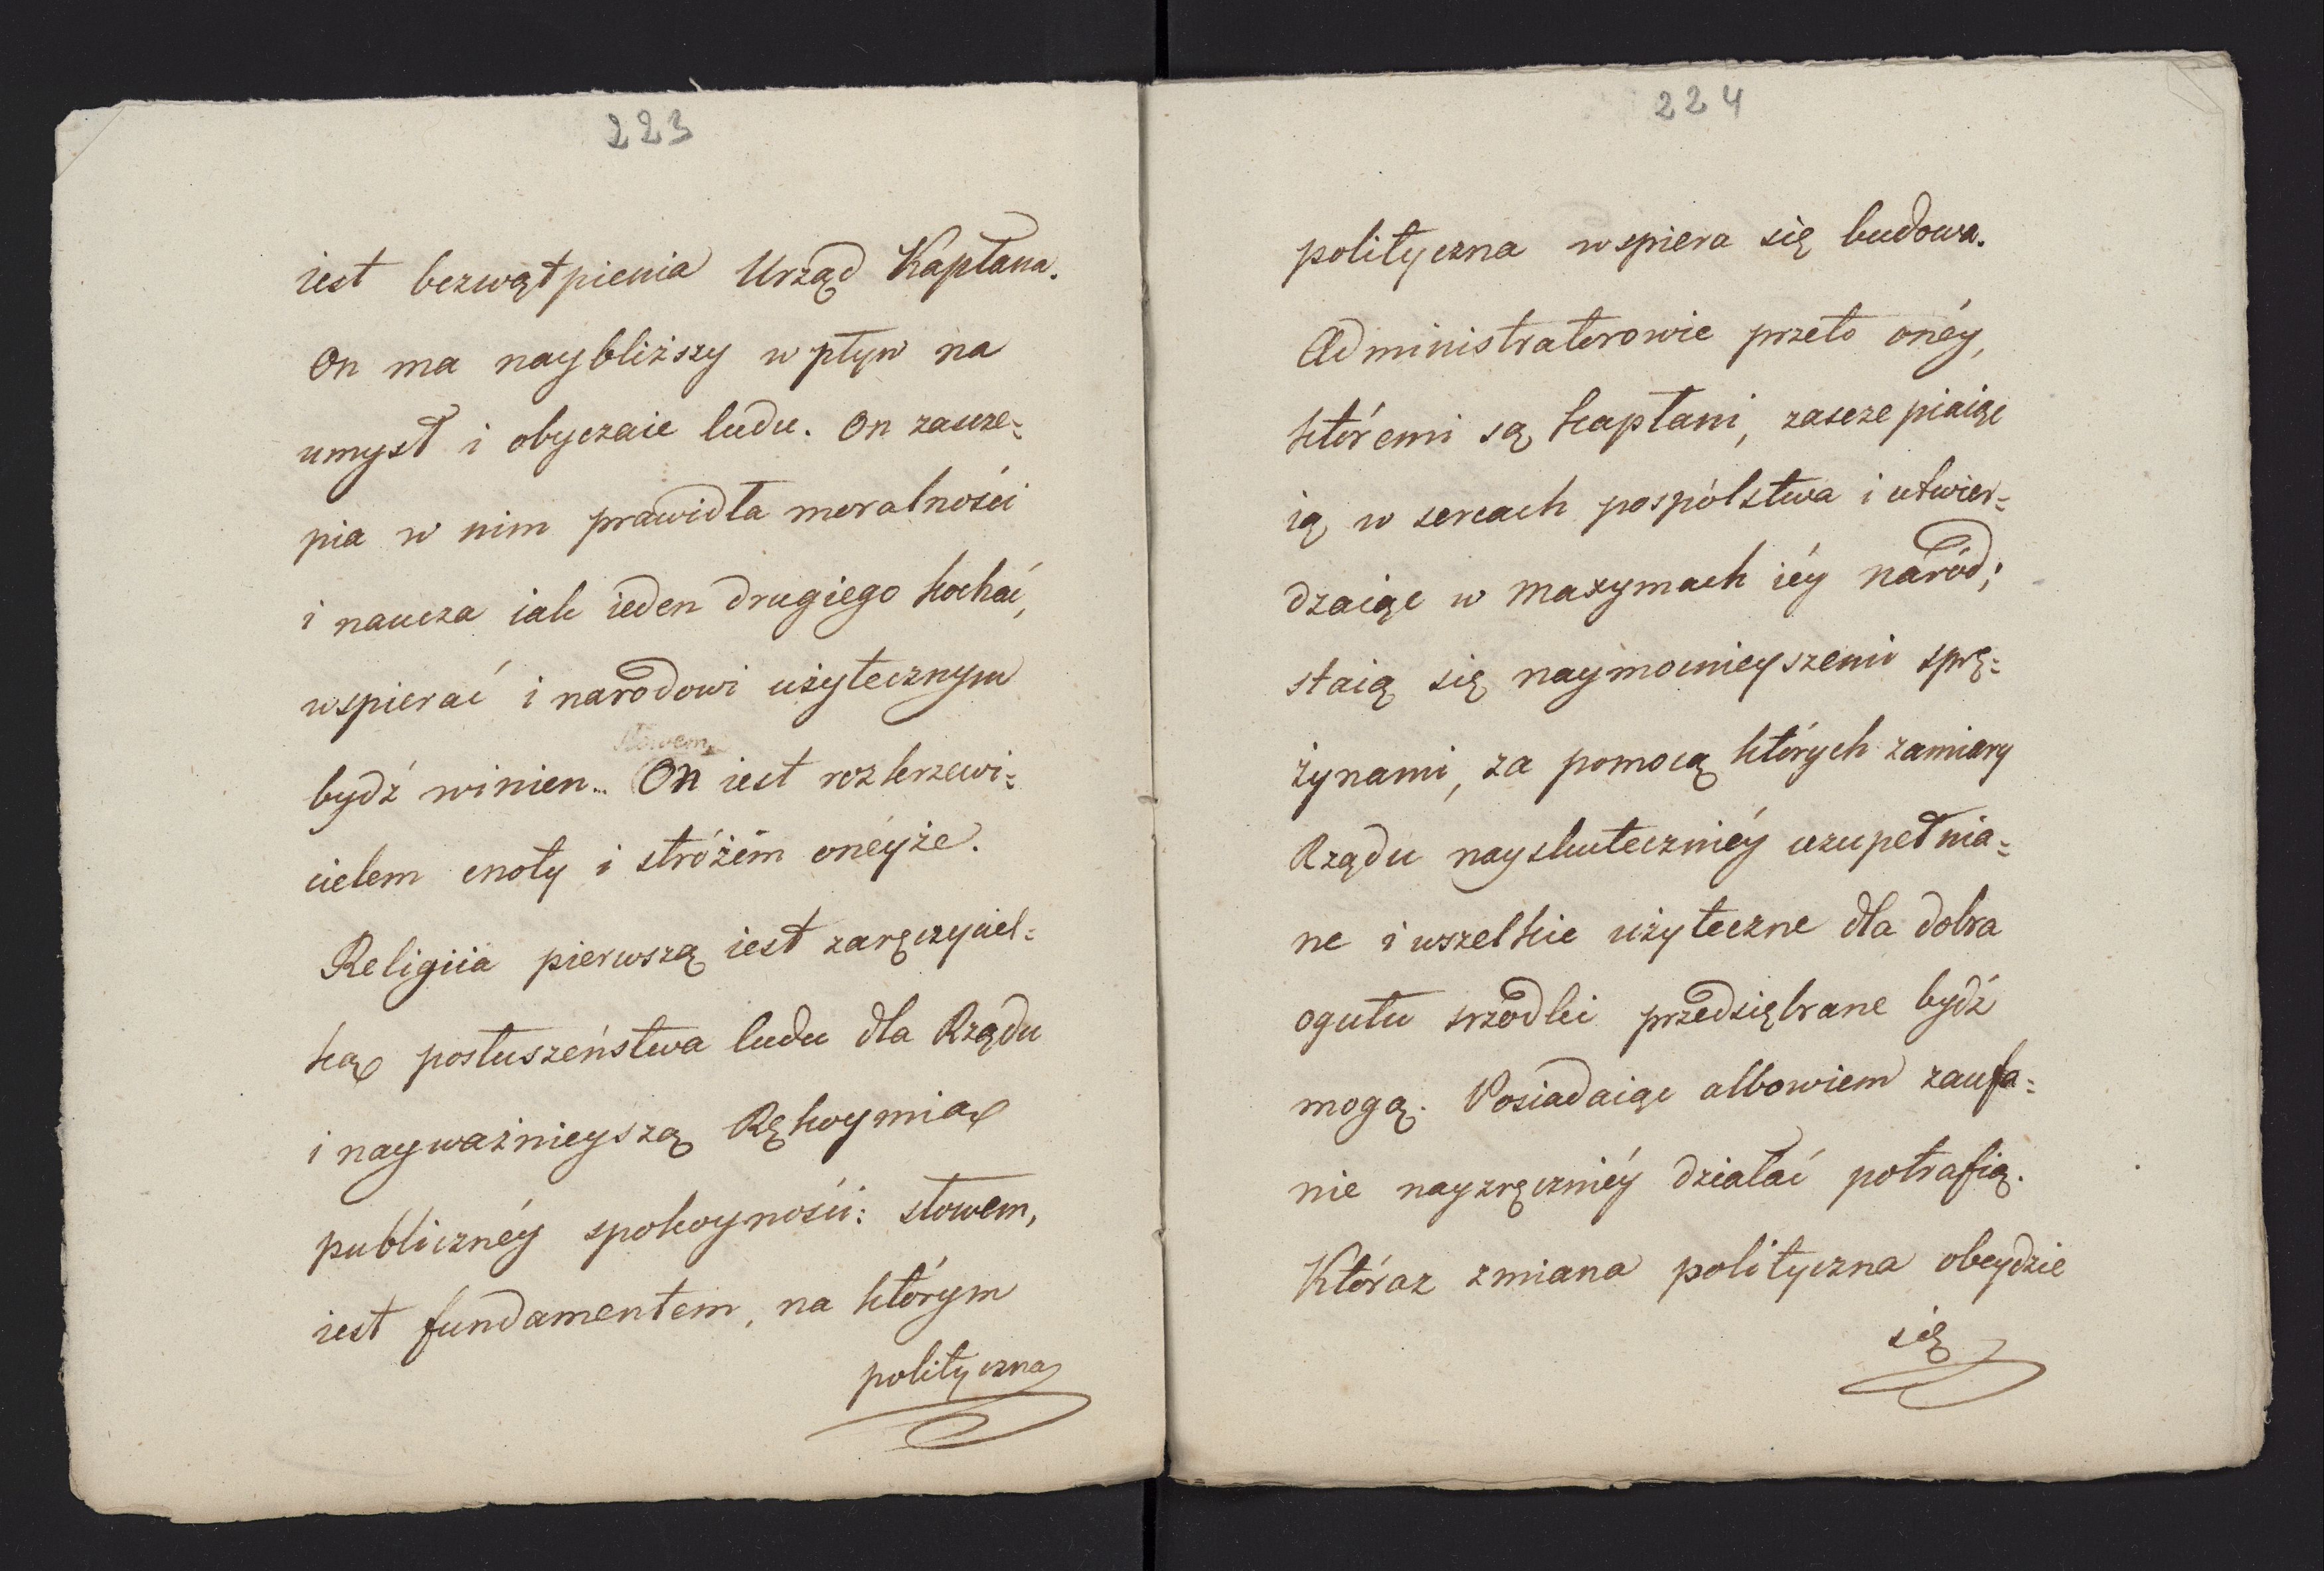 223
iest bezwątpienia Urząd Kapłana.
On ma naybliższy wpływ na
umysł i obyczaie ludu. On zaszcze=
pia w nim prawidła moralności
i naucza iak ieden drugiego kochać,
wspierać i narodowi użytecznym
Słowem
bydź winien... On iest rozkrzewi=
cielem cnoty i stróżem onéyże.
Religiia pierwszą iest zaręczyciel=
ką posłuszeństwa ludu dla Rządu
i nayważnieyszą Rękoymią
publicznéy spokoyności: słowem,
iest fundamentem, na którym
polityczna
224
polityczna wspiera się budowa.
Administratorowie przeto onéy,
któremi są kapłani, zaszczepiaiąc
ią w sercach pospólstwa i utwier=
dzaiąc w maxymach iéy naród;
staią się naymocnieyszemi sprę=
żynami, za pomocą których zamiary
Rządu nayskuteczniéy uzupełnia=
ne i wszelkie użyteczne dla dobra
ogułu srzodki przedsiębrane bydź
mogą. Posiadaiąc albowiem zaufa=
nie nayzręczniéy działać potrafią.
Któraz zmiana polityczna obeydzie
się